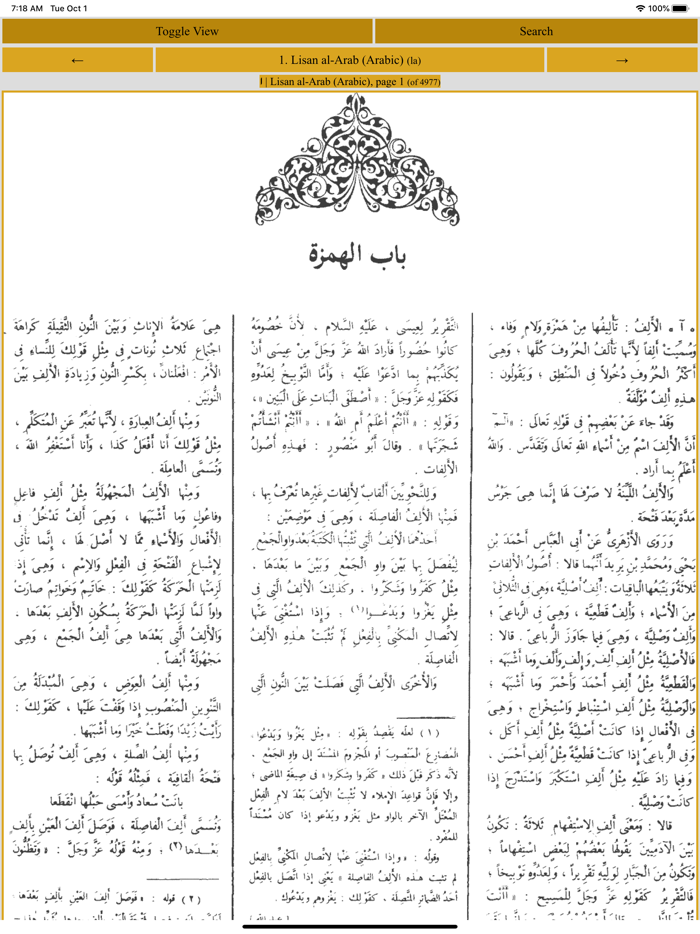 7:18 AM Tue Oct 1
100%
Toggle View
Search
←
1. Lisan al-Arab (Arabic) (la)
→
| Lisan al-Arab (Arabic), page 1 (of 4977)
باب الهمزة
« آ » الأَلِفُ : تَأْلِيفُها مِنْ هَمْزَةٍ وَلامٍ وَفاء ،
وَسُمِّيَتْ أَلِفاً لِأَنَّها تَأْلَفُ الْحُرُوفَ كُلَّها ؛ وَهِىَ
أَكْثَرُ الْحُرُوفِ دُخُولاً فِى الْمَنْطِقِ ؛ وَيَقُولُونَ :
هٰذِهِ أَلِفٌ مُؤَلَّفَةٌ .
وَقَدْ جاءَ عَنْ بَعْضِهِمْ فِى قَوْلِهِ تَعالَى : «الٓـمٓ»
أَنَّ الأَلِفَ اسْمٌ مِنْ أَسْماءِ اللهِ تَعالَى وَتَقَدَّس . وَاللهُ
أَعْلَمُ بِما أَراد .
وَالأَلِفُ اللَّيِّنَةُ لا صَرْفَ لَها إِنَّما هِىَ جَرْسُ
مَدَّةٍ بَعْدَ فَتْحَة .
وَرَوَى الأَزْهَرِىُّ عَنْ أَبِى الْعَبَّاسِ أَحْمَدَ بْنِ
يَحْيَى وَمُحَمَّدِ بْنِ يَزِيدَ أَنَّهُما قالا : أُصُولُ الأَلِفاتِ
ثَلاثَةٌ وَيَتْبَعُها الْباقِيات : أَلِفٌ أَصْلِيَّة ، وَهِىَ فِى الثُّلاثِىِّ
مِنَ الأَسْماء ؛ وَأَلِفٌ قَطْعِيَّة ، وَهِىَ فِى الرُّباعِىّ ؛
وَأَلِفٌ وَصْلِيَّة ، وَهِىَ فِيما جاوَزَ الرُّباعِىّ . قالا :
فَالأَصْلِيَّةُ مِثْلُ أَلِفِ أَلِفٍ وَإِلْفٍ وَأَلْفٍ وَما أَشْبَهَه ؛
وَالْقَطْعِيَّةُ مِثْلُ أَلِفِ أَحْمَدَ وَأَحْمَرَ وَما أَشْبَهَه ؛
وَالْوَصْلِيَّةُ مِثْلُ أَلِفِ اسْتِنْباطٍ وَاسْتِخْراج ؛ وَهِىَ
فِى الأَفْعالِ إِذا كانَتْ أَصْلِيَّةً مِثْلُ أَلِفِ أَكَل ،
وَفِى الرُّباعِىِّ إِذا كانَتْ قَطْعِيَّةً مِثْلُ أَلِفِ أَحْسَن .
وَفِيما زادَ عَلَيْهِ مِثْلُ أَلِفِ اسْتَكْبَرَ وَاسْتَدْرَجَ إِذا
كانَتْ وَصْلِيَّة .
قالا : وَمَعْنَى أَلِفِ الِاسْتِفْهامِ ثَلاثَةٌ : تَكُونُ
بَيْنَ الآدَمِيِّينَ يَقُولُها بَعْضُهُمْ لِبَعْضٍ اسْتِفْهاماً ؛
وَتَكُونُ مِنَ الْجَبَّارِ لِوَلِيِّهِ تَقْرِيراً ، وَلِعَدُوِّهِ تَوْبِيخاً ؛
فَالتَّقْرِيرُ كَقَوْلِهِ عَزَّ وَجَلَّ لِلْمَسِيحِ : « أَأَنْتَ
التَّقْرِيرُ لِعِيسَى ، عَلَيْهِ السَّلام ، لِأَنَّ خُصُومَهُ
كانُوا حُضُوراً فَأَرادَ اللهُ عَزَّ وَجَلَّ مِنْ عِيسَى أَنْ
يُكَذِّبَهُمْ بِما ادَّعَوْا عَلَيْه ؛ وَأَمَّا التَّوْبِيخُ لِعَدُوِّهِ
فَكَقَوْلِهِ عَزَّ وَجَلَّ : « أَصْطَفَى الْبَناتِ عَلَى الْبَنِين » ،
وَقَوْلِهِ : « أَأَنْتُمْ أَعْلَمُ أَمِ اللهُ » ، « أَأَنْتُمْ أَنْشَأْتُمْ
شَجَرَتَها » . وَقالَ أَبُو مَنْصُورٍ : فَهٰذِهِ أُصُولُ
الأَلِفات .
وَلِلنَّحْوِيِّينَ أَلْقابٌ لِأَلِفاتٍ غَيْرِها تُعْرَفُ بِها ،
فَمِنْها الأَلِفُ الْفاصِلَة ، وَهِىَ فِى مَوْضِعَيْنِ :
أَحَدُهُما الأَلِفُ الَّتِى تُثْبِتُها الْكَتَبَةُ بَعْدَ واوِ الْجَمْعِ
لِيُفْصَلَ بِها بَيْنَ واوِ الْجَمْعِ وَبَيْنَ ما بَعْدَها .
مِثْلُ كَفَرُوا وَشَكَرُوا . وَكَذٰلِكَ الأَلِفُ الَّتِى فِى
مِثْلِ يَغْزُوا وَيَدْعُوا(١) ؛ وَإِذا اسْتُغْنِىَ عَنْها
لِاتِّصالِ الْمَكْنِىِّ بِالْفِعْلِ لَمْ تَثْبُتْ هٰذِهِ الأَلِفُ
الْفاصِلَة .
وَالأُخْرَى الأَلِفُ الَّتِى فَصَلَتْ بَيْنَ النُّونِ الَّتِى
(١) لعلّه يقصِدُ بِقَوْلِهِ : « مِثل يَغْزُوا وَيَدْعُوا .
المضارِعَ المنصُوبَ أو المجزومَ المسنَدَ إلى واوِ الجمْع .
لأنّه ذكر قبْلَ ذلك « كفَروا وشكروا » فى صيغةِ الماضى ؛
وإلّا فإنَّ قواعِدَ الإملاء لا تُثْبِتُ الأَلِفَ بَعْدَ لامِ الفِعْلِ
المُعْتَلِّ الآخرِ بالواو مثل يَغْزُو ويَدْعُو إذا كان مُسْنَداً
للمُفْرد .
وقوله : « وإذا اسْتُغْنِىَ عَنْها لِاتِّصالِ المَكْنِىِّ بِالفِعْلِ
لم تثبت هٰذه الأَلِفُ الفاصِلَة » يعْنى إذا اتّصَلَ بالفِعْلِ
أحدُ الضَّمائرِ المتَّصِلَة ، كقوْلِك : يغْزُوهم ويدعُوك .
هِىَ عَلامَةُ الإِناثِ وَبَيْنَ النُّونِ الثَّقِيلَةِ كَراهَةَ
اجْتِماعِ ثَلاثِ نُوناتٍ فِى مِثْلِ قَوْلِكَ لِلنِّساءِ فِى
الأَمْرِ : افْعَلْنانِّ ، بِكَسْرِ النُّونِ وَزِيادَةِ الأَلِفِ بَيْنَ
النُّونَيْن .
وَمِنْها أَلِفُ الْعِبارَة ، لِأَنَّها تُعَبِّرُ عَنِ الْمُتَكَلِّم ،
مِثْلُ قَوْلِكَ أَنا أَفْعَلُ كَذا ، وَأَنا أَسْتَغْفِرُ الله ،
وَتُسَمَّى الْعامِلَة .
وَمِنْها الأَلِفُ الْمَجْهُولَةُ مِثْلُ أَلِفِ فاعِلٍ
وَفاعُولٍ وَما أَشْبَهَها ، وَهِىَ أَلِفٌ تَدْخُلُ فِى
الأَفْعالِ وَالأَسْماءِ مِمَّا لا أَصْلَ لَها ، إِنَّما تَأْتِى
لِإِشْباعِ الْفَتْحَةِ فِى الْفِعْلِ وَالِاسْمِ ، وَهِىَ إِذا
لَزِمَتْها الْحَرَكَةُ كَقَوْلِكَ : خاتَمٌ وَخَواتِمُ صارَتْ
واواً لَمَّا لَزِمَتْها الْحَرَكَةُ بِسُكُونِ الأَلِفِ بَعْدَها .
وَالأَلِفُ الَّتِى بَعْدَها هِىَ أَلِفُ الْجَمْع ، وَهِىَ
مَجْهُولَةٌ أَيْضاً .
وَمِنْها أَلِفُ الْعِوَض ، وَهِىَ الْمُبْدَلَةُ مِنَ
التَّنْوِينِ الْمَنْصُوبِ إِذا وَقَفْتَ عَلَيْها ، كَقَوْلِكَ :
رَأَيْتُ زَيْدًا وَفَعَلْتُ خَيْرًا وَما أَشْبَهَها .
وَمِنْها أَلِفُ الصِّلَةِ ، وَهِىَ أَلِفٌ تُوصَلُ بِها
فَتْحَةُ الْقافِيَة ، فَمِثْلُهُ قَوْلُهُ :
بانَتْ سُعادُ وَأَمْسَى حَبْلُها انْقَطَعا
وَتُسَمَّى أَلِفَ الْفاصِلَة ، فَوَصَلَ أَلِفَ الْعَيْنِ بِأَلِفٍ
بَعْدَها(٢) ؛ وَمِنْهُ قَوْلُهُ عَزَّ وَجَلَّ : « وَتَظُنُّونَ
(٢) قوله : « فوَصَلَ أَلِفَ العَيْنِ بأَلِفٍ بَعْدَها :